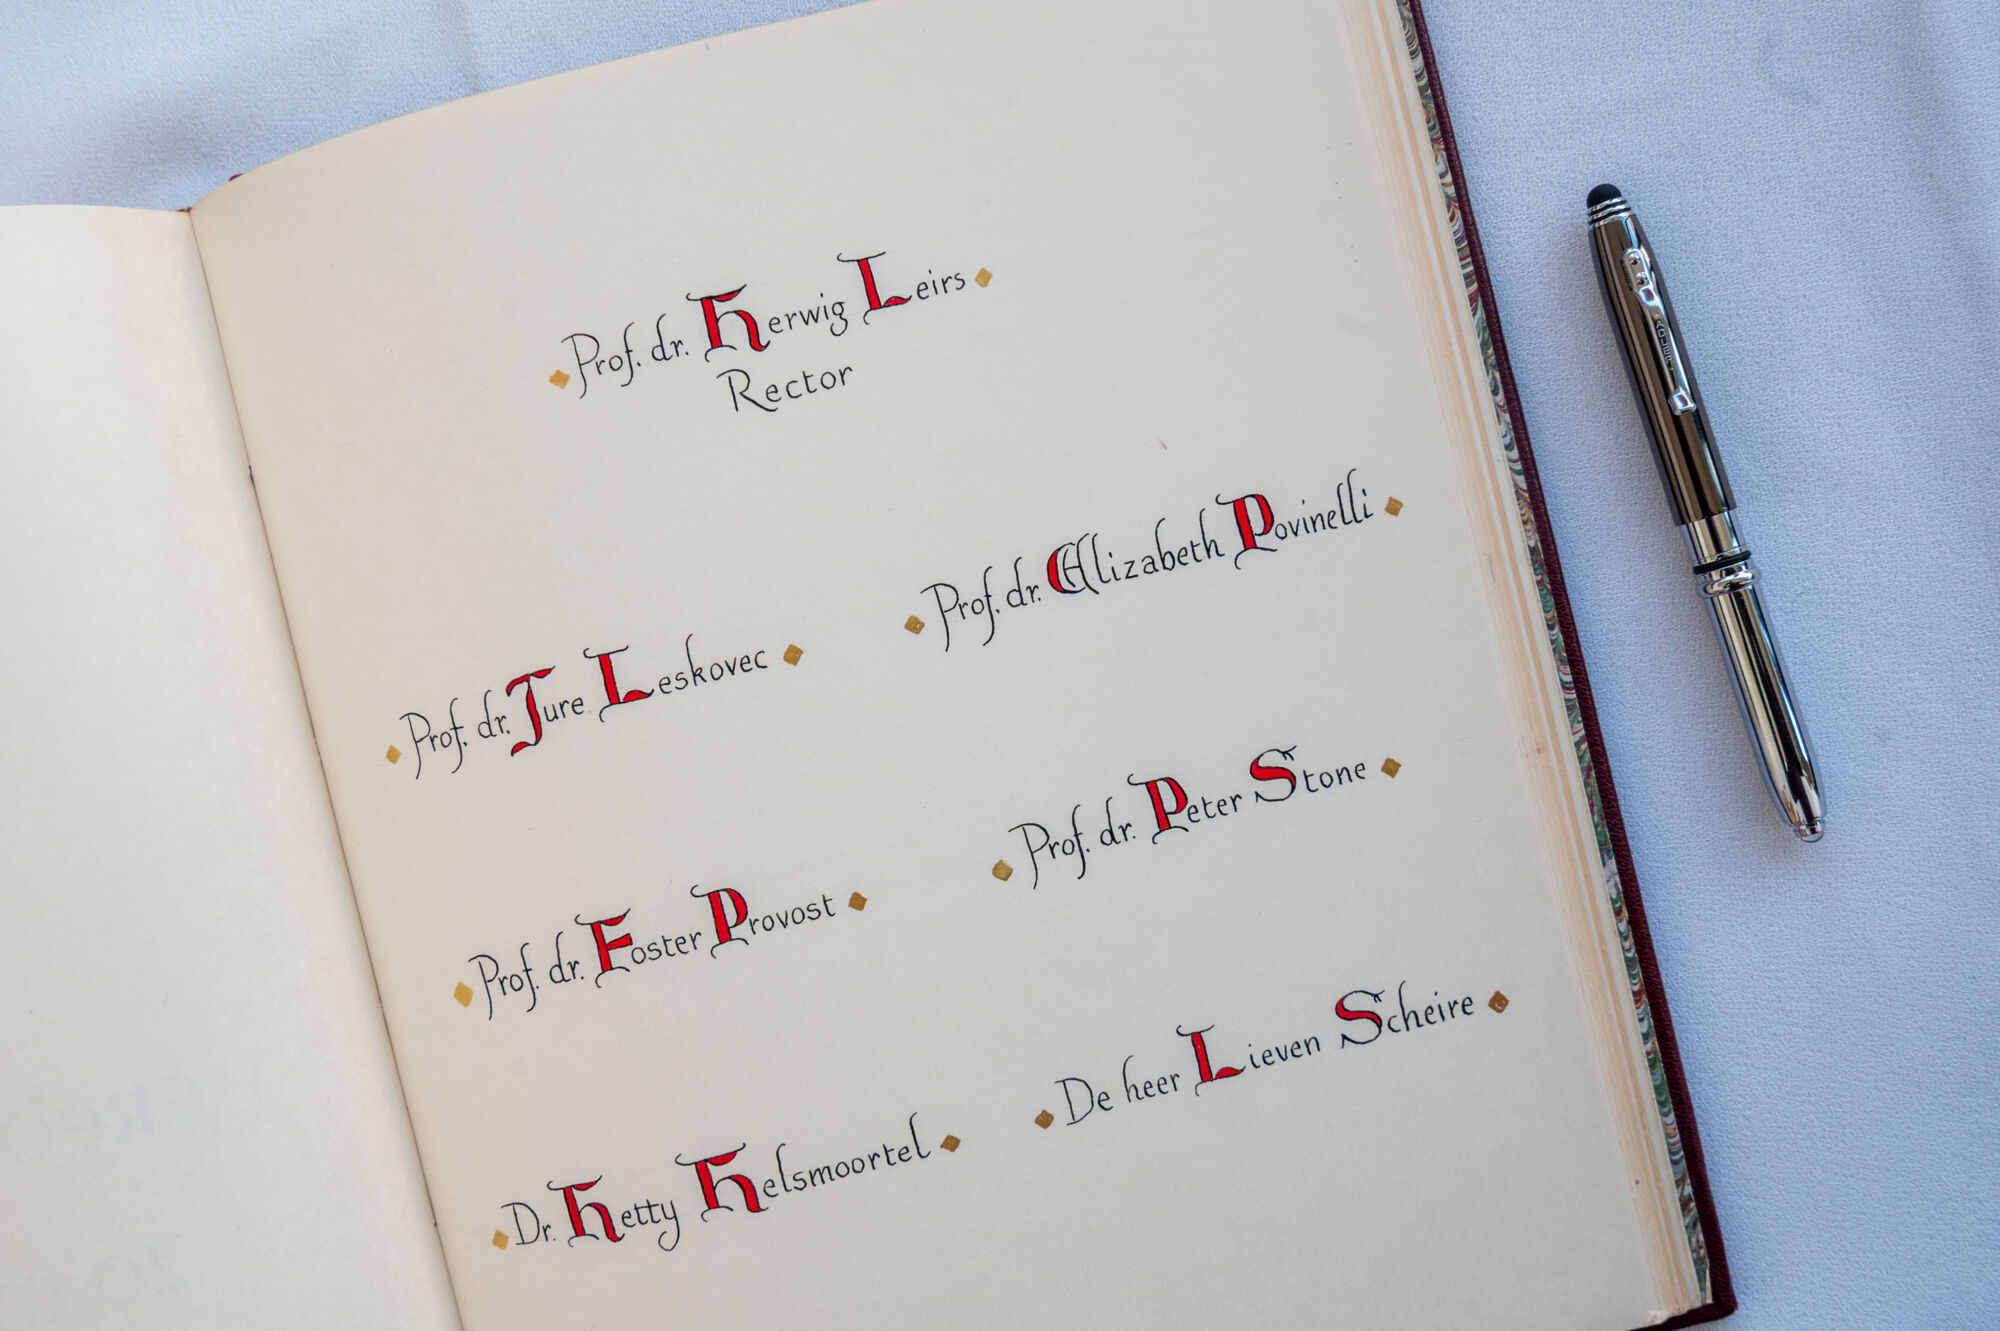 Prof. dr. Herwig Leirs
Rector
Prof. dr. Elizabeth Povinelli
Prof. dr. Jure Leskovec
Prof. dr. Peter Stone
Prof. dr. Foster Provost
De heer Lieven Scheire
Dr. Hetty Helsmoortel